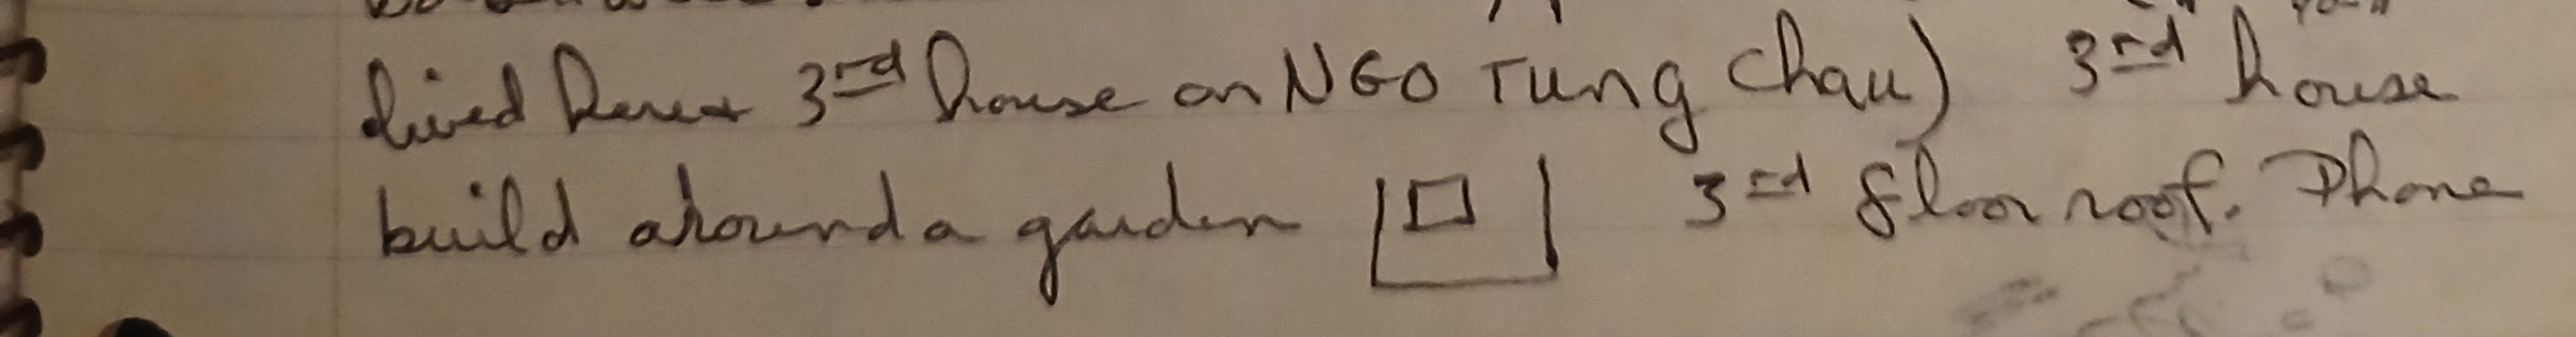 lived here + 3rd house on NGO Tung Chau) 3rd house
build around a garden 3rd floor roof. Phone